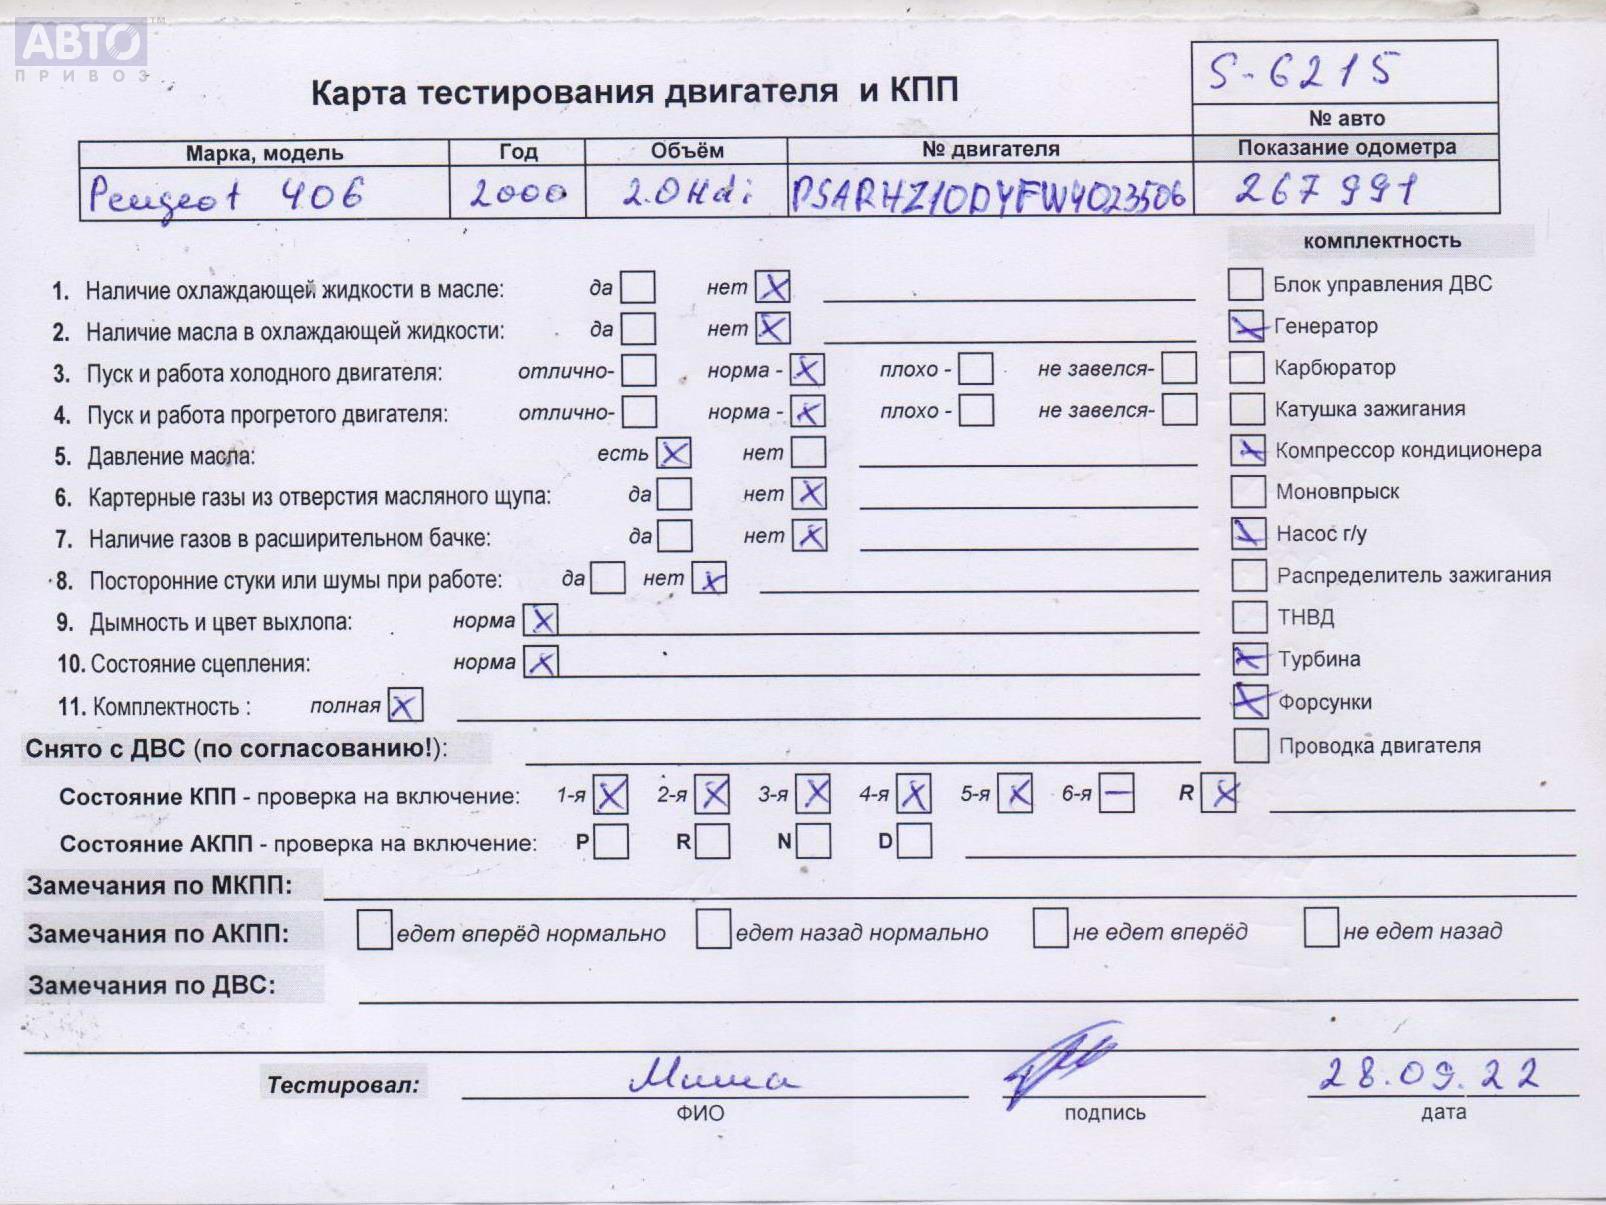 АВТО™
ПРИВОЗ
Карта тестирования двигателя и КПП
S-6215
№ авто
Марка, модель Год Объём № двигателя Показание одометра
Peugeot 406 2000 2.0 Hdi PSARHZ10DYFW4023506 267991
комплектность
1. Наличие охлаждающей жидкости в масле: да нет X
Блок управления ДВС
2. Наличие масла в охлаждающей жидкости: да нет X
X Генератор
3. Пуск и работа холодного двигателя: отлично- норма - X плохо - не завелся-
Карбюратор
4. Пуск и работа прогретого двигателя: отлично- норма - X плохо - не завелся-
Катушка зажигания
5. Давление масла: есть X нет
X Компрессор кондиционера
6. Картерные газы из отверстия масляного щупа: да нет X
Моновпрыск
7. Наличие газов в расширительном бачке: да нет X
X Насос г/у
8. Посторонние стуки или шумы при работе: да нет X
Распределитель зажигания
9. Дымность и цвет выхлопа: норма X
ТНВД
10. Состояние сцепления: норма X
X Турбина
11. Комплектность : полная X
X Форсунки
Снято с ДВС (по согласованию!):
Проводка двигателя
Состояние КПП - проверка на включение: 1-я X 2-я X 3-я X 4-я X 5-я X 6-я — R X
Состояние АКПП - проверка на включение: P R N D
Замечания по МКПП:
Замечания по АКПП: едет вперёд нормально едет назад нормально не едет вперёд не едет назад
Замечания по ДВС:
Тестировал: Миша 28.09.22
ФИО подпись дата